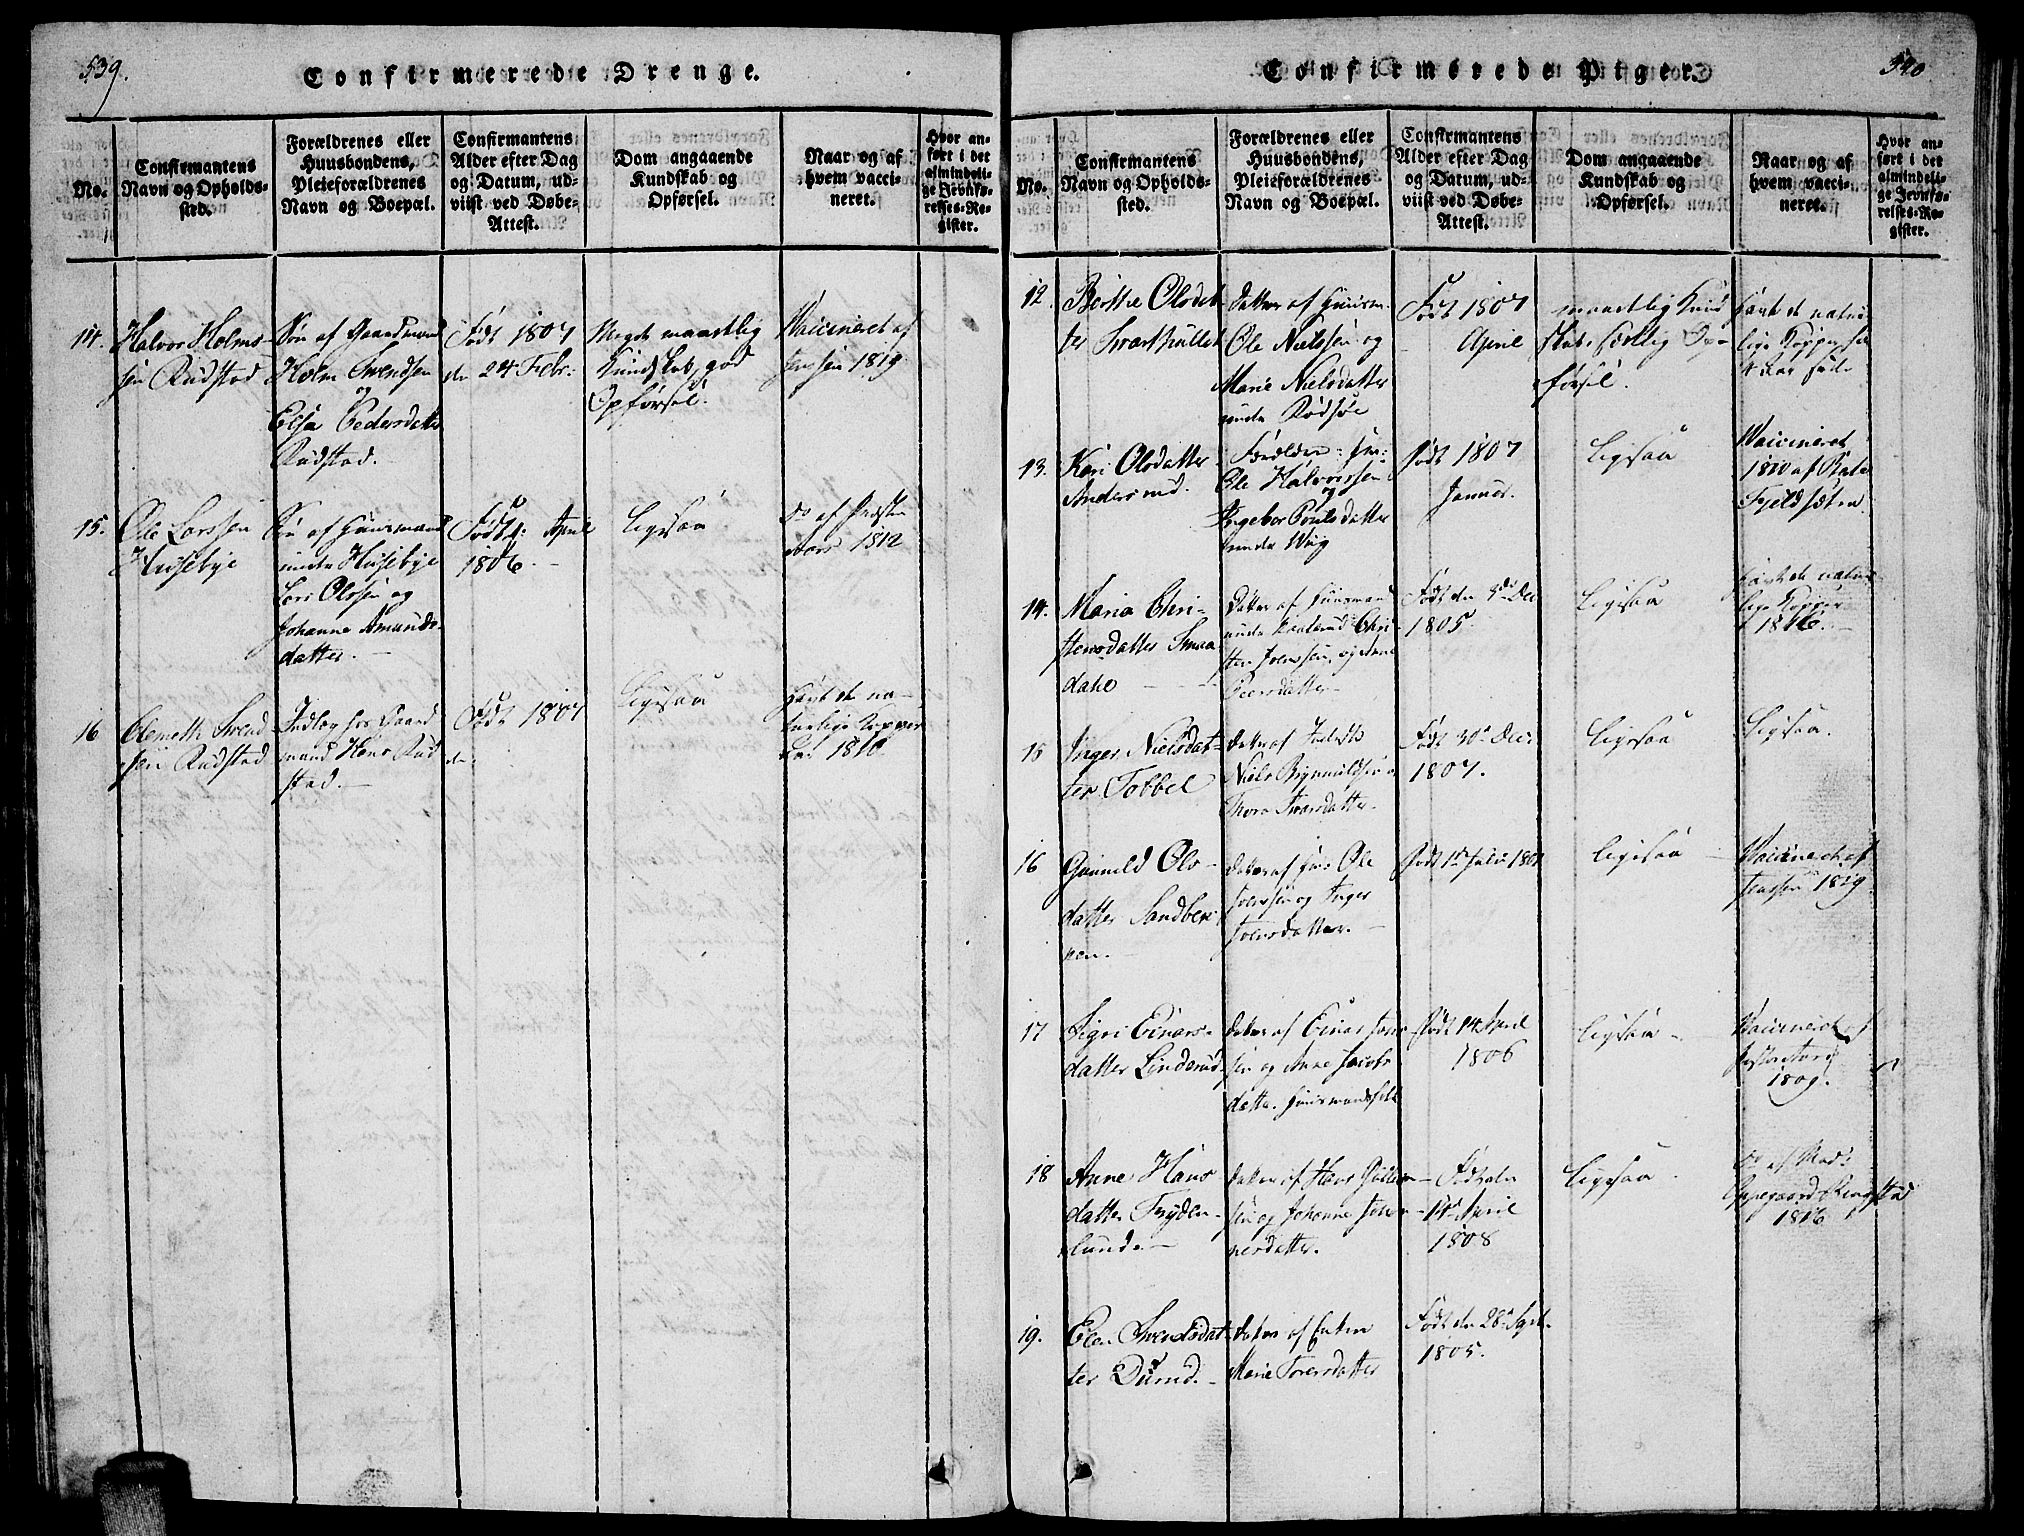 539.
Confirmerede Drenge.
No.
Confirmantens
Navn og Opholds-
sted.
Forældrenes eller
Huusbondens,
Pleieforældrenes
Navn og Boepæl.
Confirmantens
Alder efter Dag
og Datum, ud-
viist ved Døbe-
Attest.
Dom angaaende
Kundskab og
Opførsel.
Naar og af
hvem vacci-
neret.
Hvor an-
ført i det
almindeli-
ge Jevnfø-
relses-Re-
gister.
14.
Halvor Holms-
sen Rudstad
Søn af Gaardmand
Holm Svendsen
og
Elsa Pedersdatter
Rudstad.
Født 1807
den 24 Febr:
Meget maadelig
Kundskab, god
Opførsel.
Vaccineret af
Jensen 1819
15.
Ole Larssen
Husebye
Søn af Huusmand
under Husebye
Lars Olssen og
Johanne Amunds-
datter.
Født d: April
1806.
Ligesaa
Do af Præsten
1812
16
Clemeth Svend
sen Rudstad
hos Gaard
mand Hans Rud
stad.
Født 1807
de
Ligesaa
Havt de na-
turlige Kopper
1810
540
Confirmerede Piger.
No.
Confirmantens
Navn og Opholds-
sted.
Forældrenes eller
Huusbondens,
Pleieforældrenes
Navn og Boepæl.
Confirmantens
Alder efter Dag
og Datum, ud-
viist ved Døbe-
Attest.
Dom angaaende
Kundskab og
Opførsel.
Naar og af
hvem vacci-
neret.
Hvor an-
ført i det
almindeli-
ge Jevnfø-
relses-Re-
gister.
12.
Berthe Olsdat
ter Svarthullet
Datter af Huusm.
Ole Nielssen og
Marie Nielsdatter
under Rødsøe
Født 1807
April
maadelig Kund
skab, sædelig Op-
førsel.
Havt de natur
lige Kopper
13.
Kari Olsdatter
Andersrud.
Forældre: Hm:
Ole Halvorssen
og
Ingebor Poulsdatter
under Wiig
Født 1807
Januar.
Ligesaa
Vaccineret
1810 af
Fjeldsæten
14.
Maria Chri-
stensdatter Smaa
dahl
Datter af Huusmand
under Chri-
sten Joenssen og Anne
Peersdatter
Født den 3de Dec
1805.
Ligesaa
Havt de natur
lige Kopper
1816.
15
Inger Nielsdat-
ter Tobbel
Datter af
Niels
Thore Ivarsdatter.
Født 30te Dec:
1807.
Ligesaa
Ligesaa.
16
Gunnild Ols-
datter Sandber-
ken.
Datter af Hm Ole
Joenssen og Inger
Joensdatter.
Født 1te Julii 180
Ligesaa
Vaccineret af
Jenssen 1819
17
Sigri Einars-
datter Linderud.
Datter af Einar Jons
sen og Anne Jacobs
datter. Huusmandsfolk
Født 14 April
1806
Ligesaa
Vaccineret af
1809.
18
Anne Hans
datter Fryden-
lund.
Datter af Hans Gulbran-
sen og Johanne Johan-
nesdatter.
Født den
14de April
1808
Ligesaa
Do af Mad:
Oppegaard Ringstad
1816
19.
Elen Svendsdat-
ter Durud.
Datter af Enken
Marie Toresdatter
Født den 28de Sept.
1805.